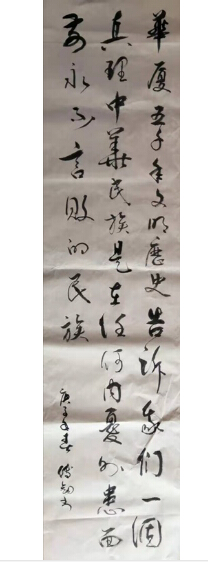 華厦五千年文明歷史告訴我们一個
真理中華民族是在任何内憂外患面
前永不言敗的民族
庚子年春